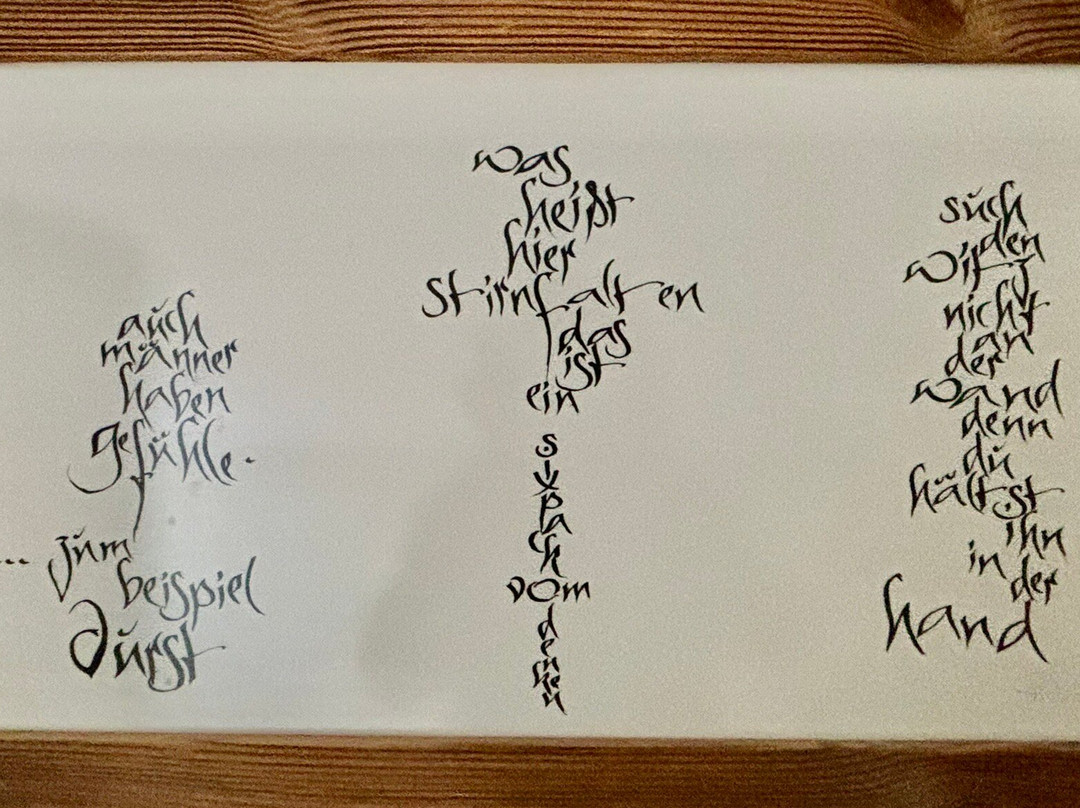 auch
männer
haben
gefühle.
... zum
beispiel
durst
was
heißt
hier
stirnfalten
das
ist
ein
sixpack
vom
denken
such
den
witz
nicht
an
der
wand
denn
du
hältst
ihn
in
der
hand